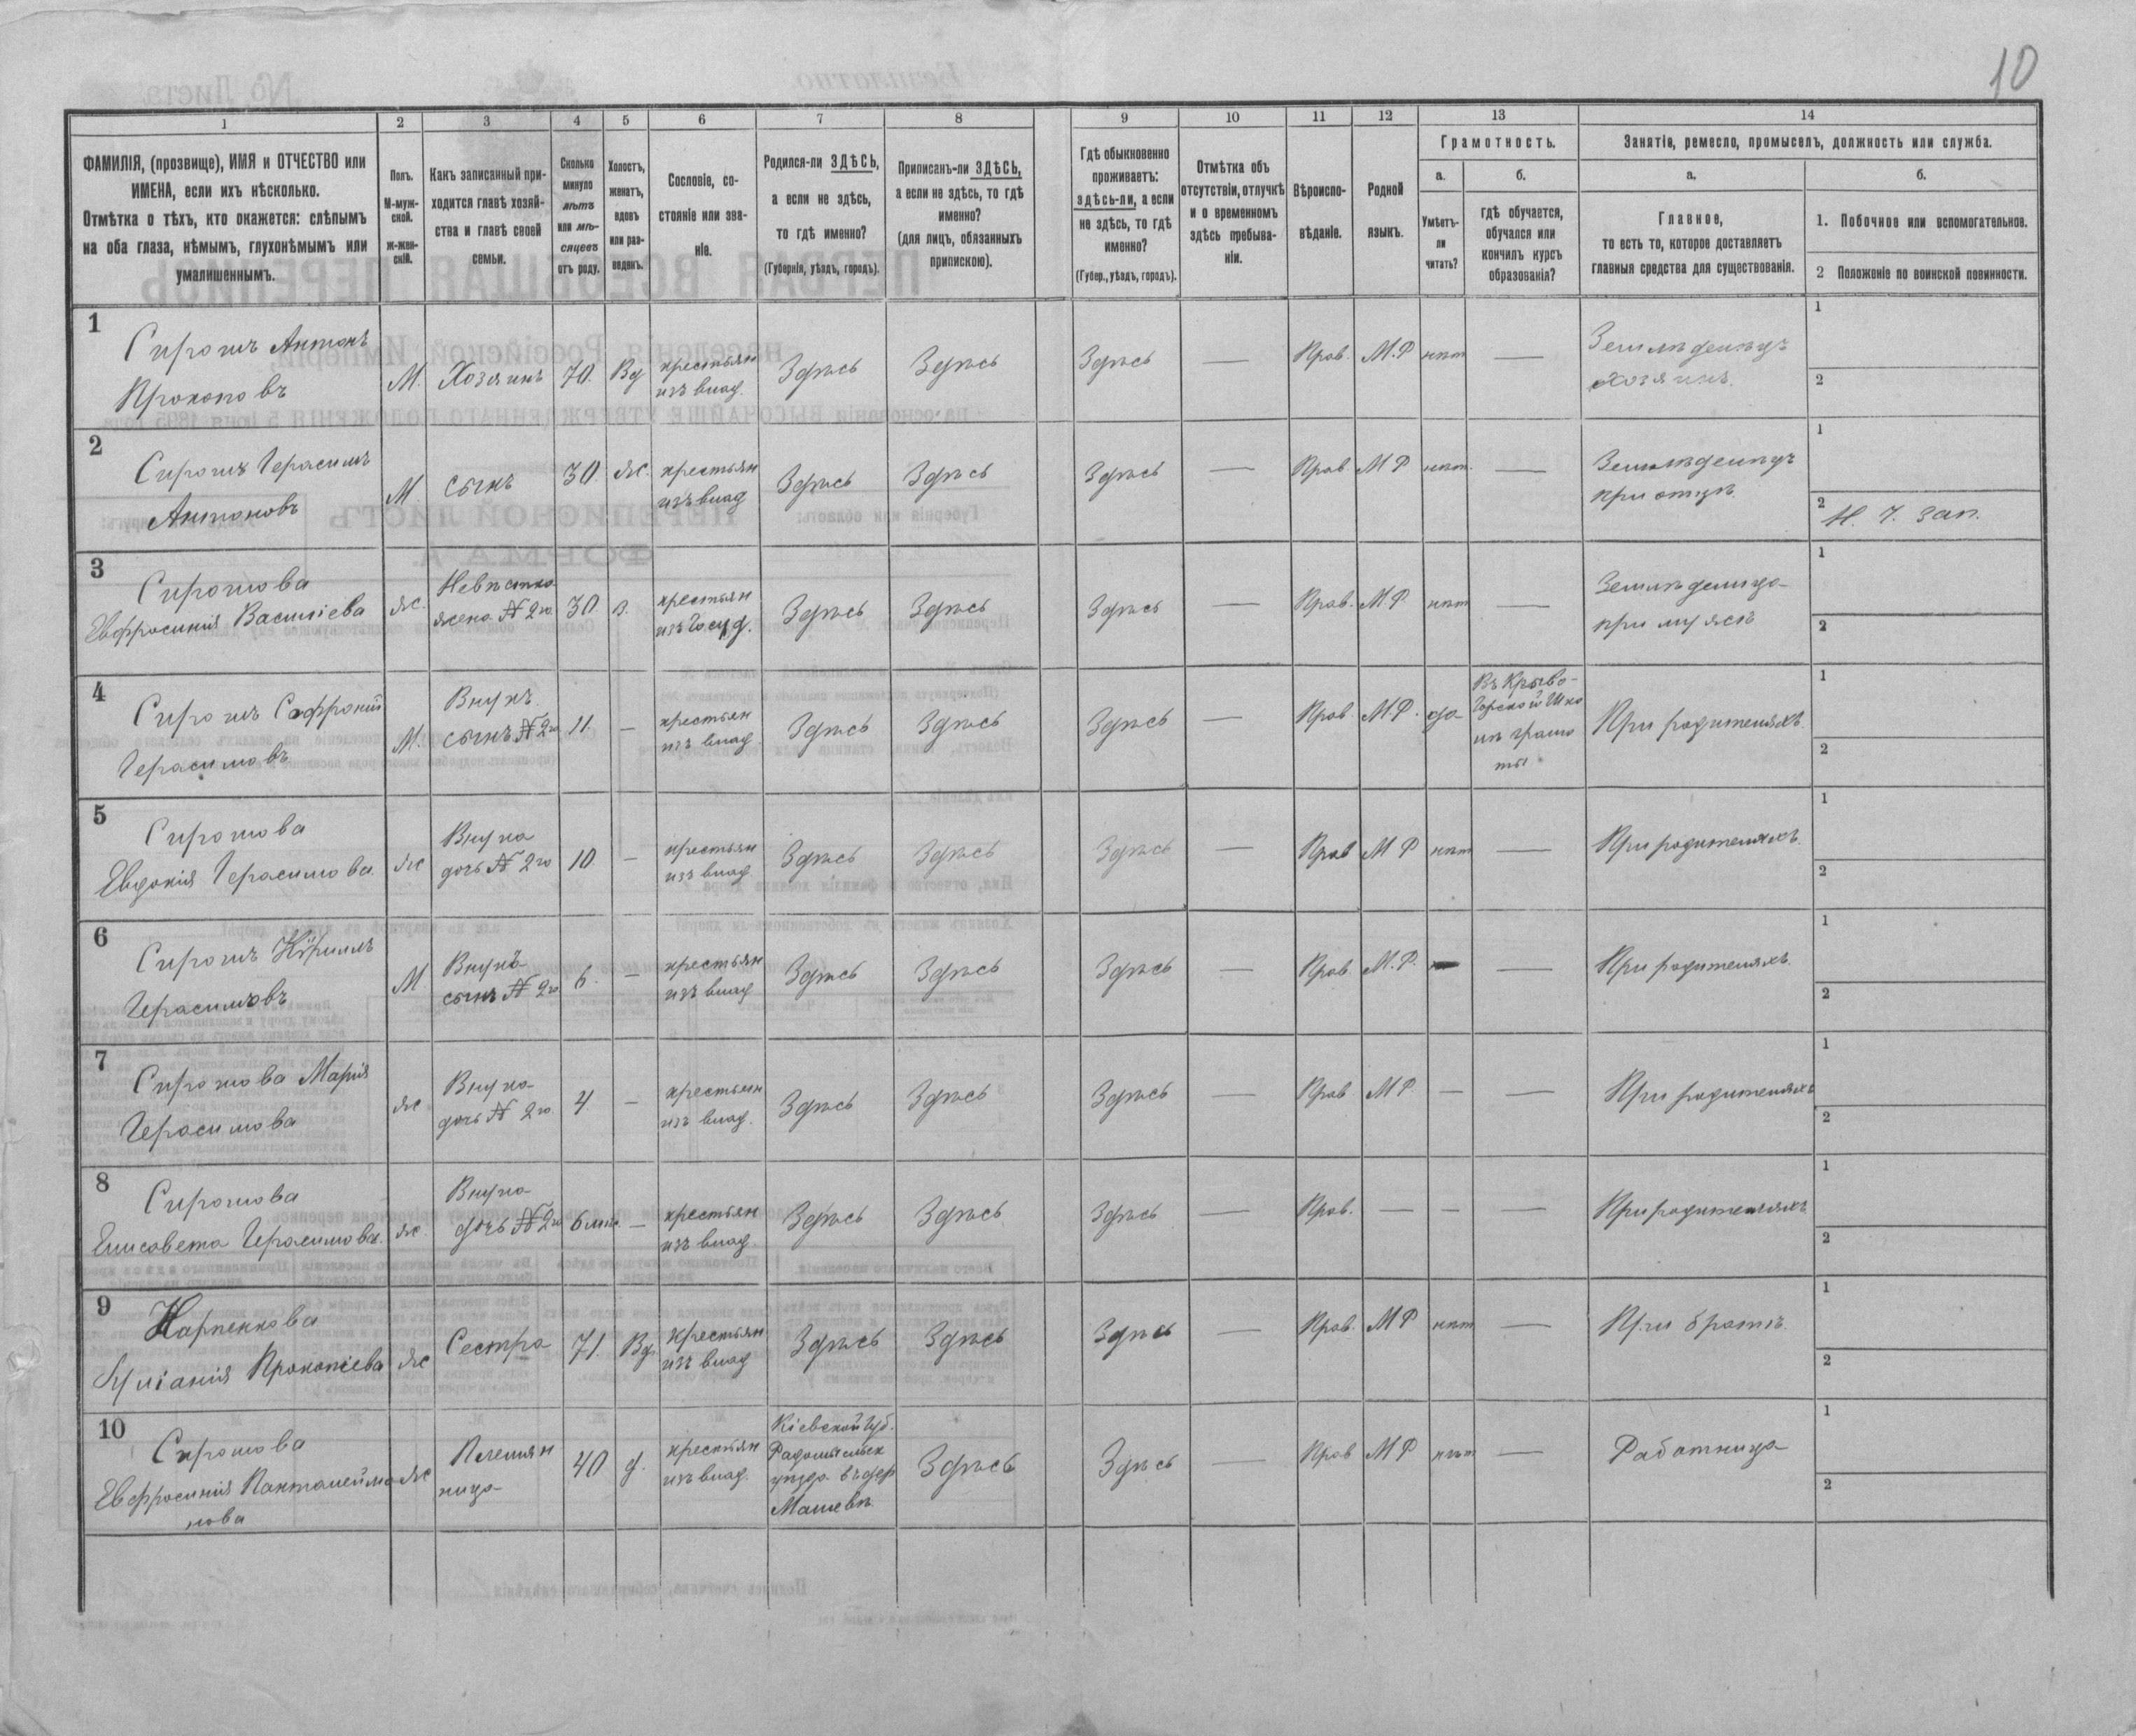 10
1
2
3
4
5
6
7
8
9
10
11
12
13
14
ФАМИЛІЯ, (прозвище), ИМЯ и ОТЧЕСТВО или
ИМЕНА, если ихъ нѣсколько.
Отмѣтка о тѣхъ, кто окажется: слѣпымъ
на оба глаза, нѣмымъ, глухонѣмымъ или
умалишеннымъ.
Полъ.
М-муж-
ской.
ж-жен-
скій.
Какъ записанный при-
ходится главѣ хозяй-
ства и главѣ своей
семьи.
Сколько
минуло
лѣтъ
или мѣ-
сяцевъ
отъ роду.
Холостъ,
женатъ,
вдовъ
или раз-
веденъ.
Сословіе, со-
стояніе или зва-
ніе.
Родился-ли ЗДѢСЬ,
а если не здѣсь,
то гдѣ именно?
(Губернія, уѣздъ, городъ).
Приписанъ-ли ЗДѢСЬ,
а если не здѣсь, то гдѣ
именно?
(для лицъ, обязанныхъ
припискою).
Гдѣ обыкновенно
проживаетъ:
здѣсь-ли, а если
не здѣсь, то гдѣ
именно?
(Губер., уѣздъ, городъ).
Отмѣтка объ
отсутствіи, отлучкѣ
и о временномъ
здѣсь пребыва-
ніи.
Вѣроиспо-
вѣданіе.
Родной
языкъ.
Грамотность.
а.
Умѣетъ-
ли
читать?
б.
гдѣ обучается,
обучался или
кончилъ курсъ
образованія?
Занятіе, ремесло, промыселъ, должность или служба.
а.
Главное,
то есть то, которое доставляетъ
главныя средства для существованія.
б.
1. Побочное или вспомогательное.
2 Положеніе по воинской повинности.
1
Сиротъ Антонъ
Прокоповъ
М. Хозяинъ 70. Вд крестьян
изъ влад. Здѣсь Здѣсь Здѣсь — Прав. М.Р нѣт — Земледѣлецъ
хозяинъ.
1
2
2
Сиротъ Герасимъ
Антоновъ
М. сынъ 30. ж. крестьян
изъ влад Здѣсь Здѣсь Здѣсь — Прав М Р нѣт. — Земледѣлецъ
при отцѣ.
1
2 Н. Ч. зап.
3
Сиротова
Евфросинія Василіева
ж. Невѣстка
жена № 2го 30. з. крестьян
изъ Госуд. Здѣсь Здѣсь Здѣсь — Прав. М.Р. нѣт — Земледѣлица
при мужѣ
1
2
4
Сиротъ Софроній
Герасимовъ
М. Внукъ.
сынъ № 2го 11. — крестьян
изъ влад Здѣсь Здѣсь Здѣсь — Прав М.Р. да Въ Криво-
Горской Шко
лѣ грамо
ты При родителяхъ.
1
2
5
Сиротова
Евдокія Герасимова.
ж Внучка
дочь № 2го 10. — крестьян
изъ влад Здѣсь Здѣсь Здѣсь — Прав М Р нѣт — При родителяхъ.
1
2
6
Сиротъ Кириллъ
Герасимовъ
М. Внукъ
сынъ № 2го 6. — крестьян
изъ влад Здѣсь Здѣсь Здѣсь — Прав М.Р. — — При родителяхъ.
1
2
7
Сиротова Марія
Герасимова
ж Внучка
дочь № 2го. 4. — крестьян
изъ влад. Здѣсь Здѣсь Здѣсь — Прав М Р. — — При родителяхъ
1
2
8
Сиротова
Елисавета Герасимова.
ж. Внучка
дочь № 2го 6 мѣс. — крестьян
изъ влад. Здѣсь Здѣсь Здѣсь — Прав. — — — При родителяхъ
1
2
9
Карпенкова
Уліанія Прокопіева
ж Сестра 71. Вд. крестьян
изъ влад Здѣсь Здѣсь Здѣсь — Прав. М Р нѣт — При братѣ.
1
2
10
Сиротова
Евфросинія Панталеймо
нова
ж Племян
ница 40 д. крестьян
изъ влад. Кіевской Губ.
Радомысльск
уѣзда въ дер
Машевѣ. Здѣсь Здѣсь — Прав М Р нѣт — Работница
1
2